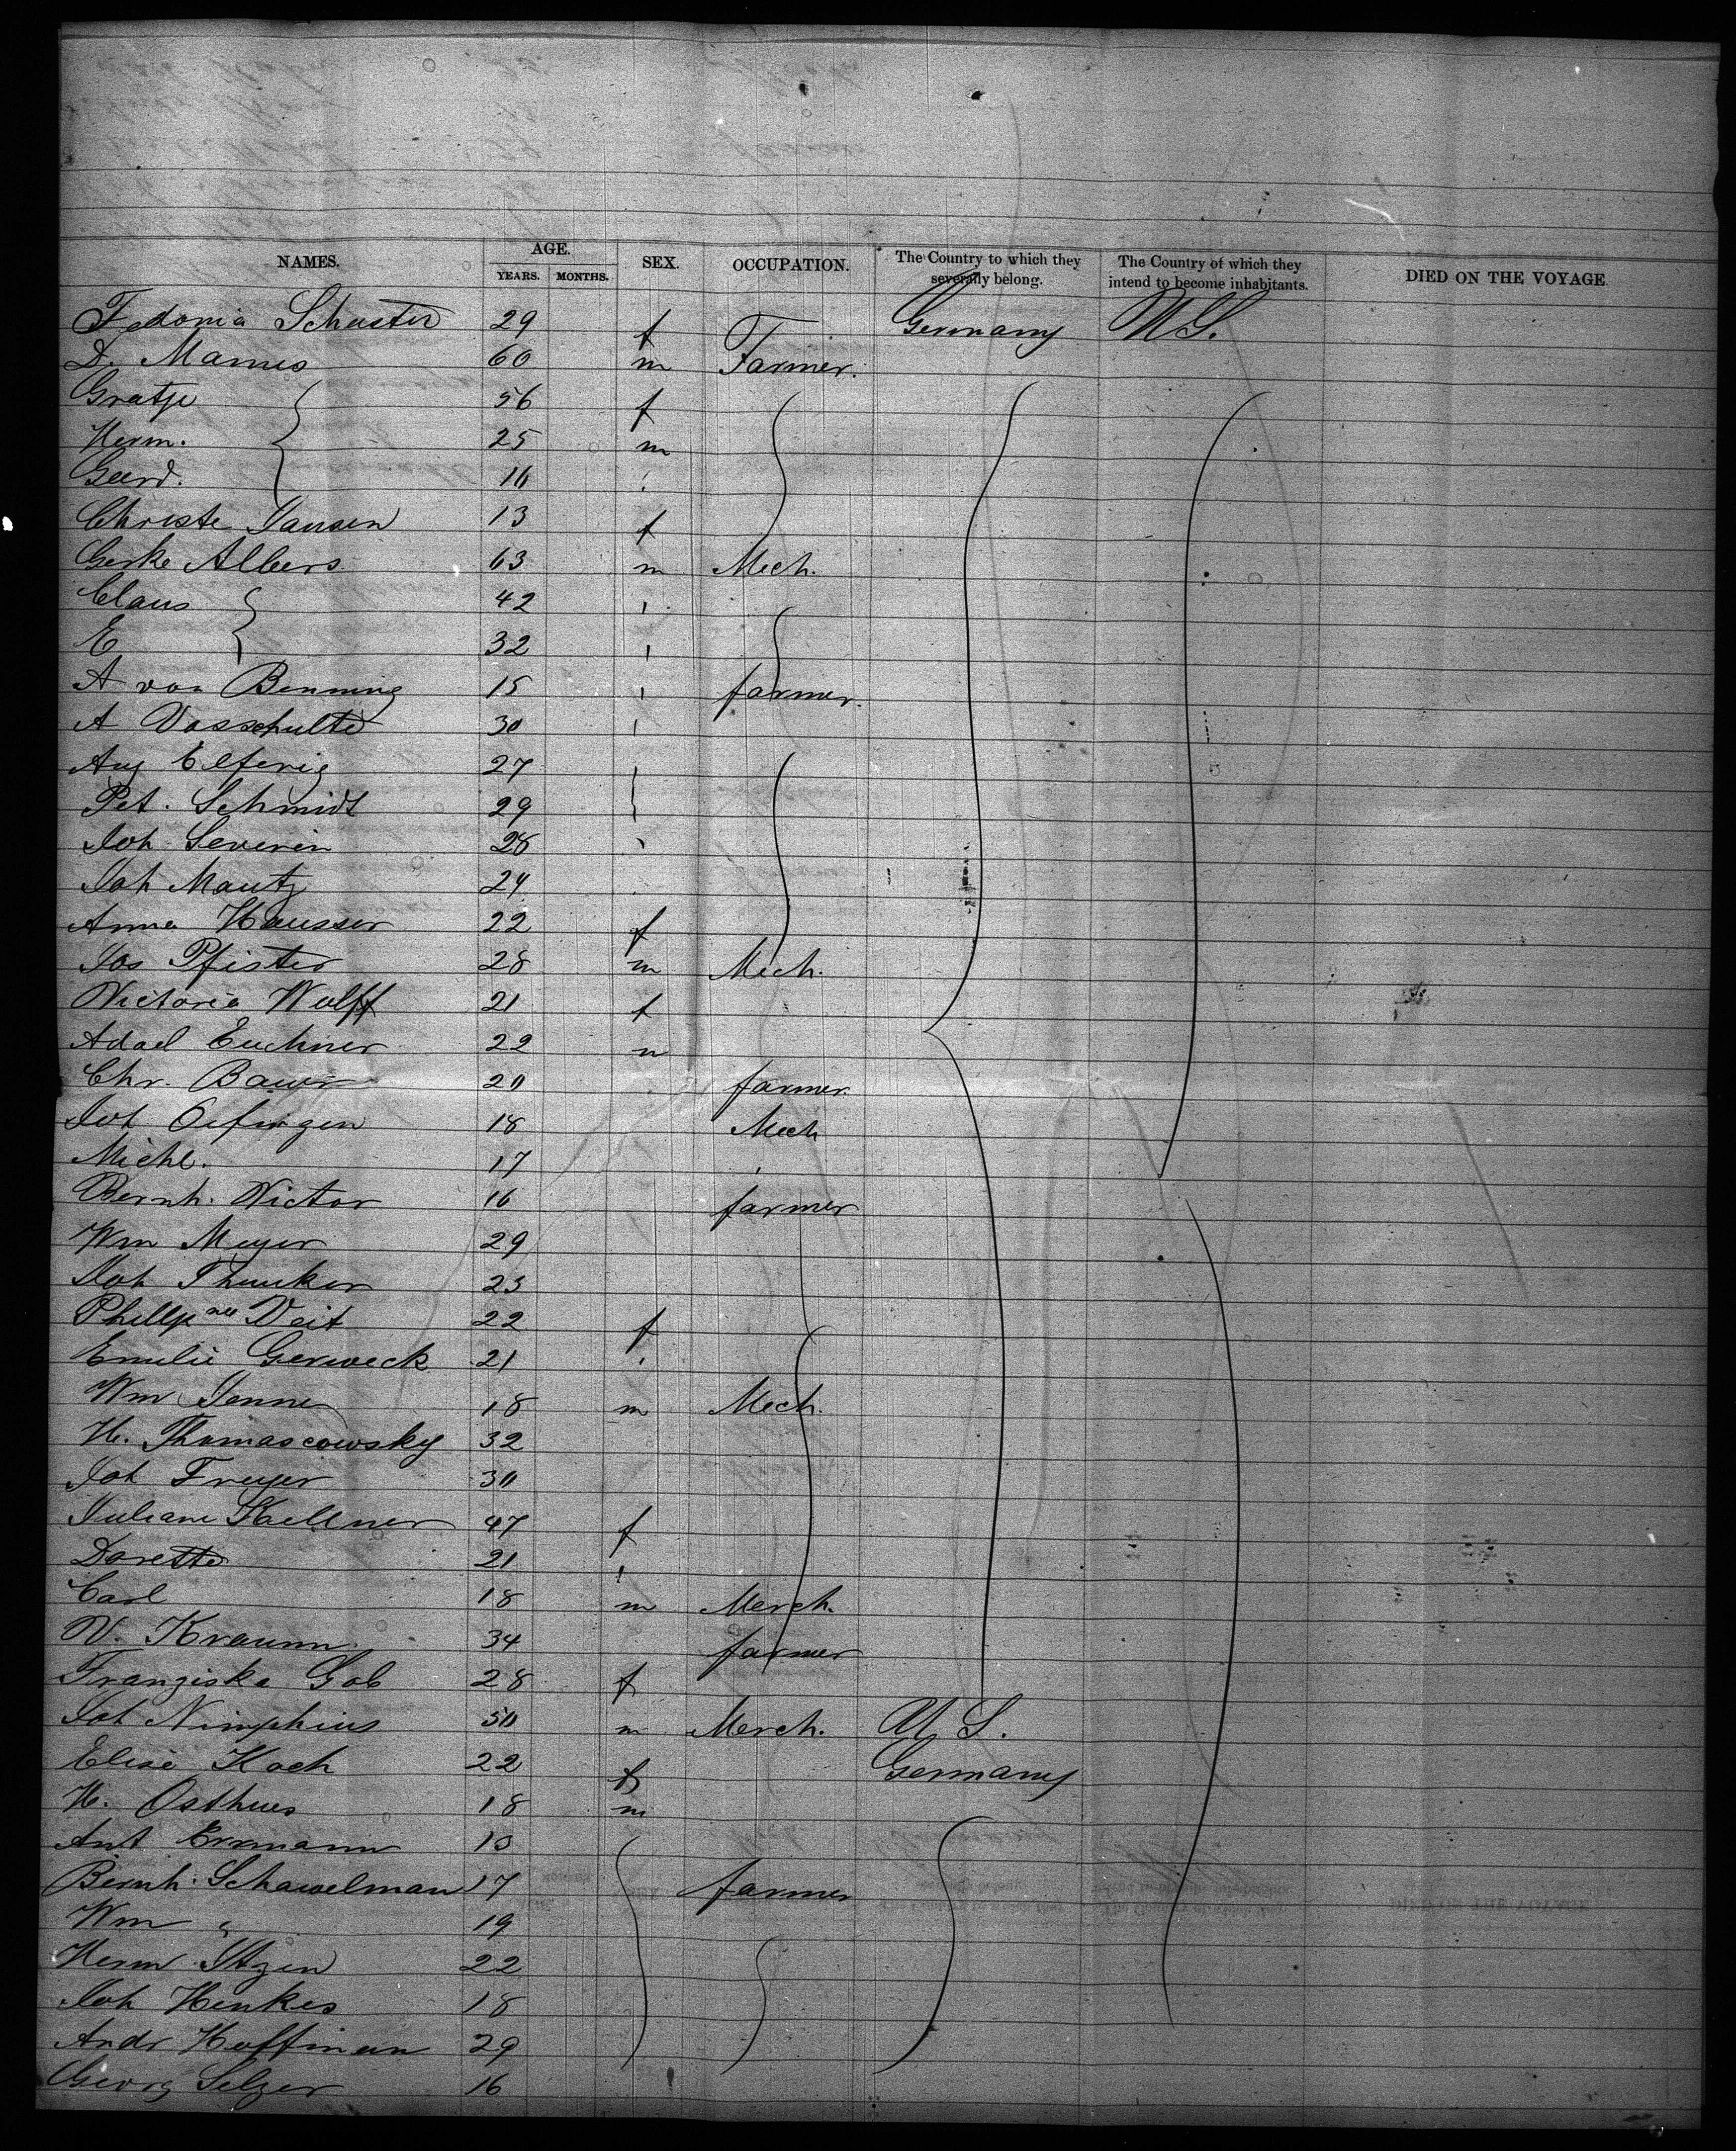 NAMES. AGE. YEARS. MONTHS. SEX. OCCUPATION. The Country to which they severally belong. The Country of which they intend to become inhabitants. DIED ON THE VOYAGE.
Fedonia Schuster 29 f Germany U S.
D. Mamus 60 m Farmer.
Gratje 56 f
Herm. 25 m
Geerd. 16
Christe Jansen 13 f
Gerke Albers 63 m Mech.
Claus 42
E 32
A von Benning 15 farmer.
A Vosschulte 30
Aug Elferig 27
Pet. Schmidt 29
Joh Severin 28
Joh Mautz 24
Anna Hausser 22 f
Jos Pfister 28 m Mech.
Victoria Wolff 21 f
Euchner 22 m
Chr. Bauer 20 farmer.
Joh Oefingen 18 Mech
Michl. 17
Bernh. Victor 16 farmer
Wm Meyer 29
Joh 23
Veit 22 f
Emilie Gerweck 21
Wm Jenne 18 m Mech.
H. Thomascowsky 32
Joh Freyer 30
Juliane Kellner 47 f
Dorette 21
Carl 18 m Merch.
V. Kraumn 34 farmer
Franziska Gob 28 f
Joh Nimphius 50 m Merch. U S.
Elise Koch 22 f Germany
H. Osthues 18 m
Ant Ermann
Bernh. Schawelman 17 farmer
Wm " 19
Herm Itzen 22
Joh Henkes 18
Andr Hoffman 29
Georg Selzer 16